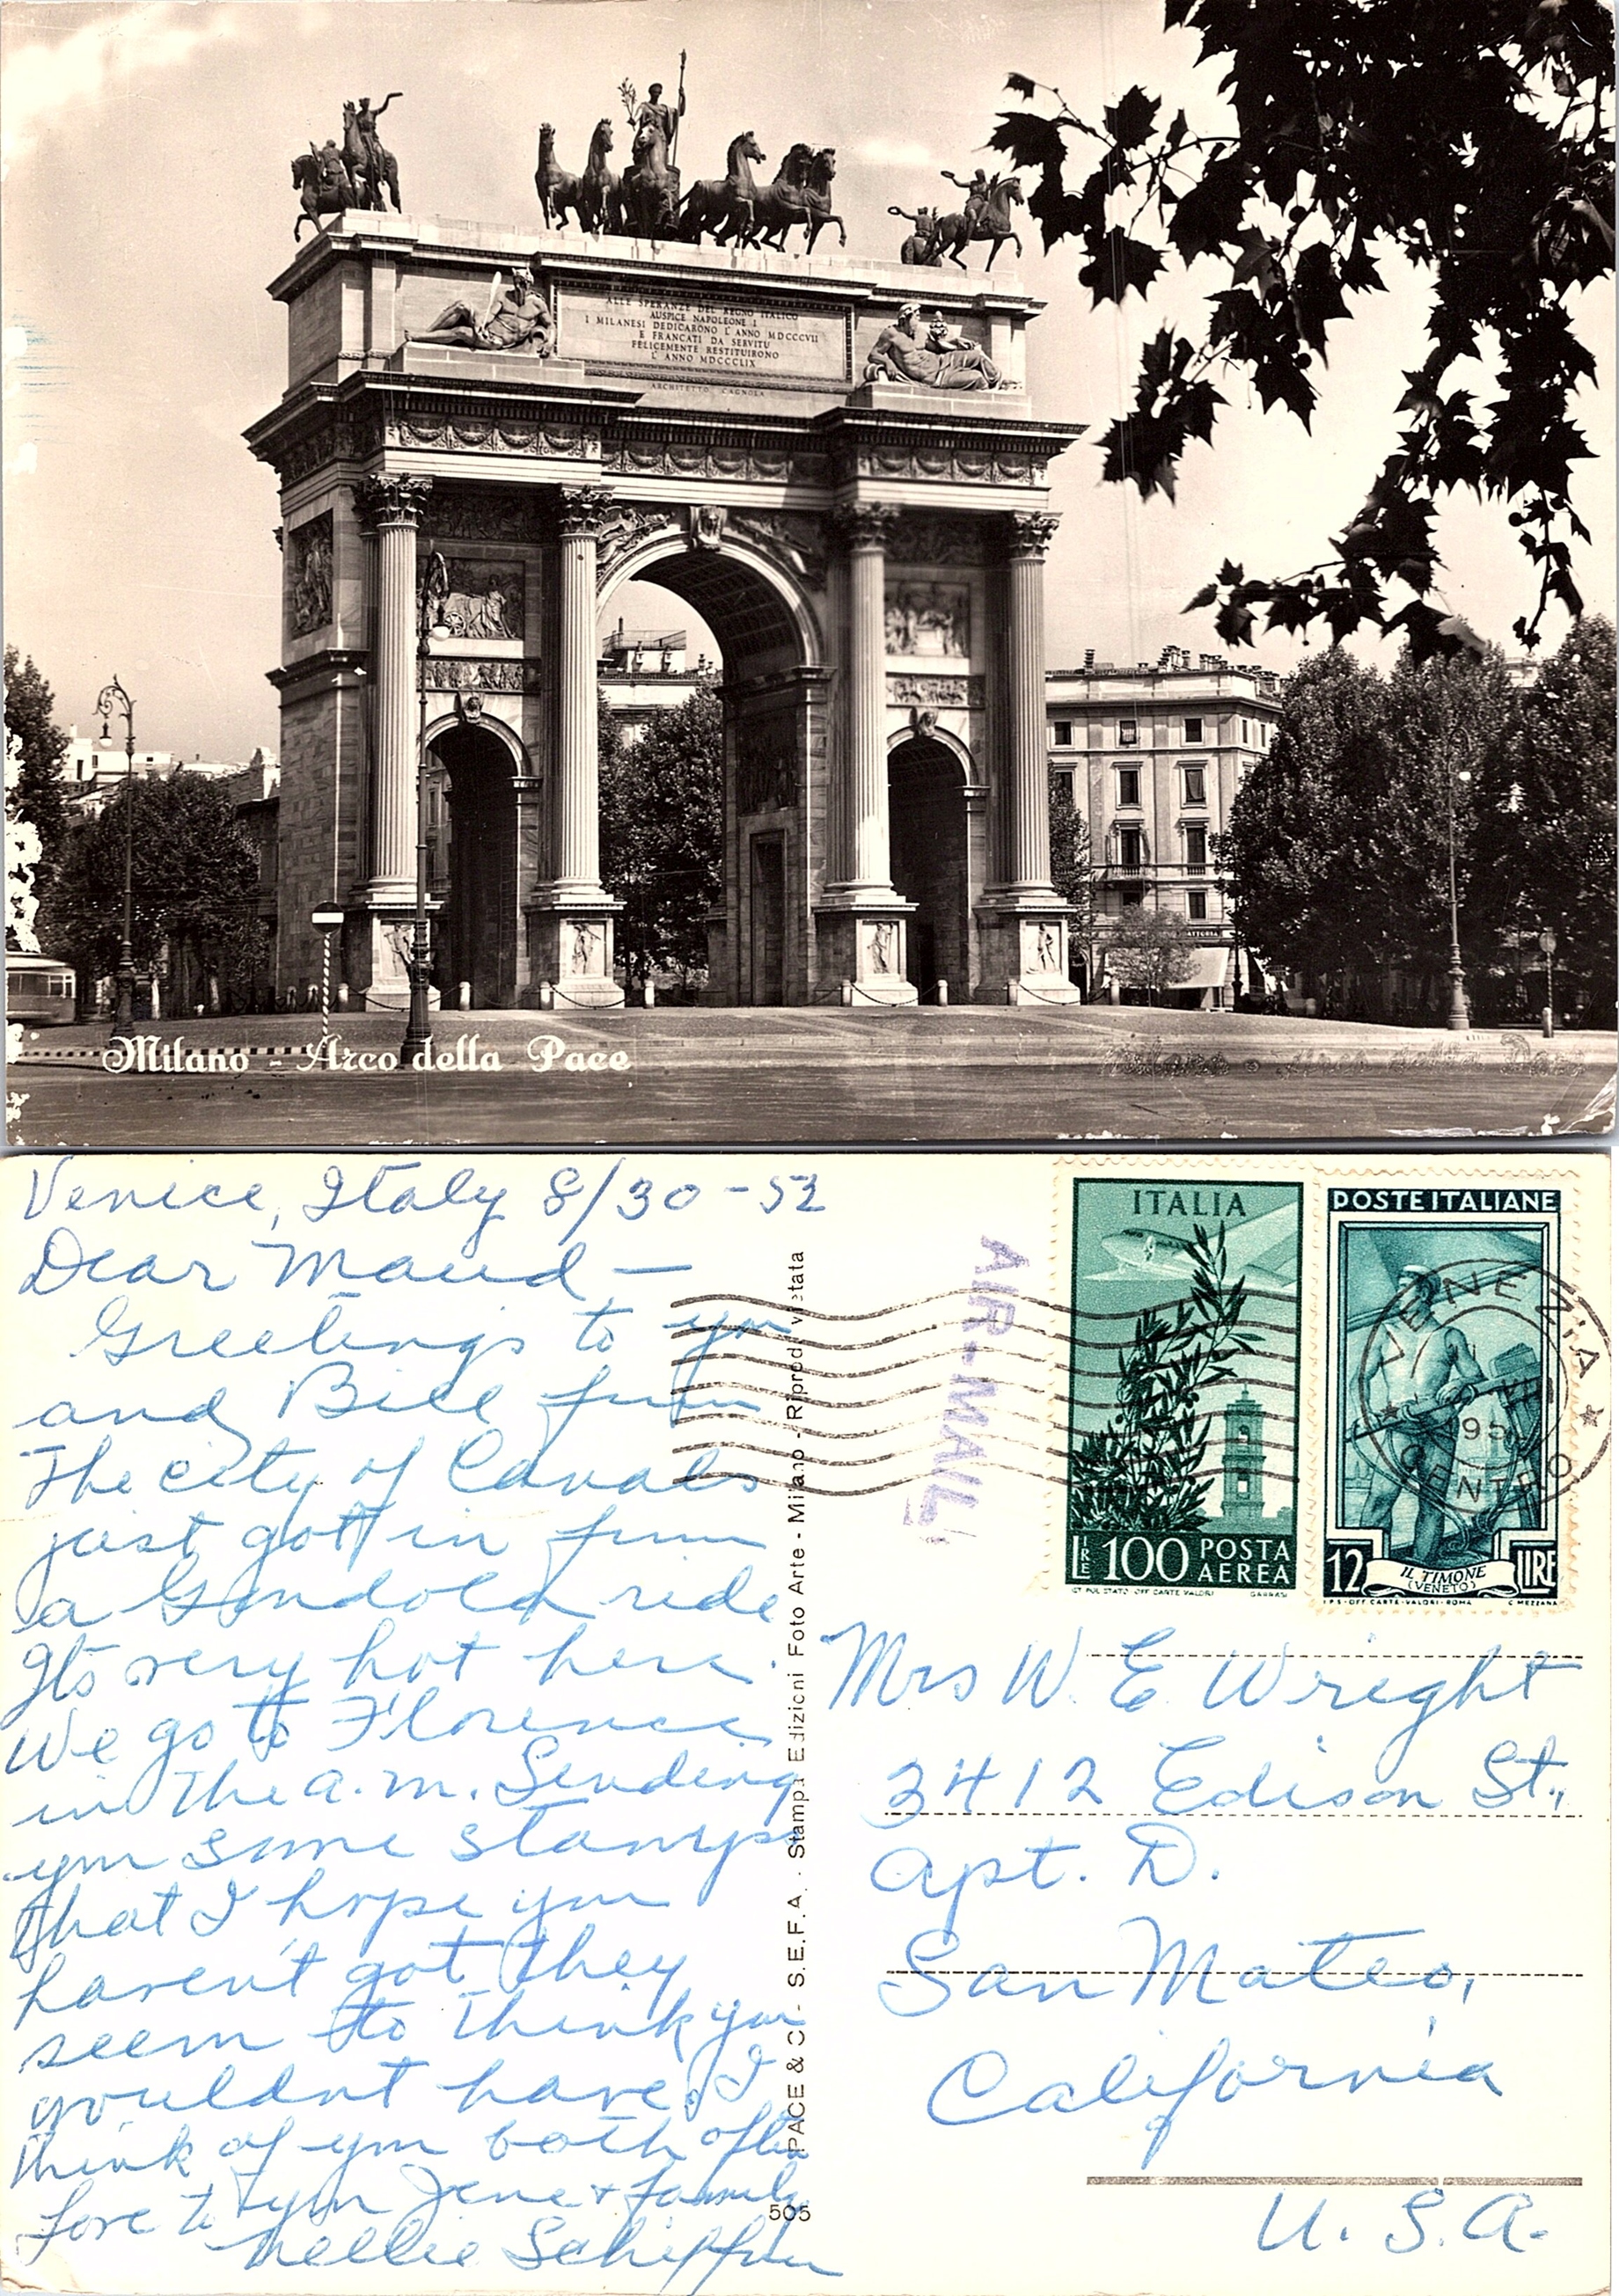 ALLE SPERANZE DEL REGNO ITALICO
AUSPICE NAPOLEONE I
I MILANESI DEDICARONO L'ANNO MDCCCVII
E FRANCATI DA SERVITÙ
FELICEMENTE RESTITUIRONO
L'ANNO MDCCCLIX
ARCHITETTO CAGNOLA
Milano - Arco della Pace
Venice, Italy 8/30-52
Dear Maud —
Greetings to you
and Bill from
The city of Canals
just got in from
a Gondola ride
Its very hot here.
We go to Florence
in the a.m. Sending
you some stamps
that I hope you
haven't got. they
seem to think you
wouldnt have. I
think of you both often
Love to you Jene + family
Nellie
PACE & C. - S.E.F.A. - Stampa Edizioni Foto Arte - Milano - Riprod. vietata
505
AIR-MAIL
ITALIA
LIRE 100 POSTA AEREA
IST. POL. STATO - OFF. CARTE VALORI
POSTE ITALIANE
12 LIRE
IL TIMONE
(VENETO)
I.P.S. - OFF. CARTE-VALORI - ROMA C. MEZZANA
VENEZIA
CENTRO
Mrs W. E. Wright
3412 Edison St.,
Apt. D.
San Mateo,
California
U. S. A.